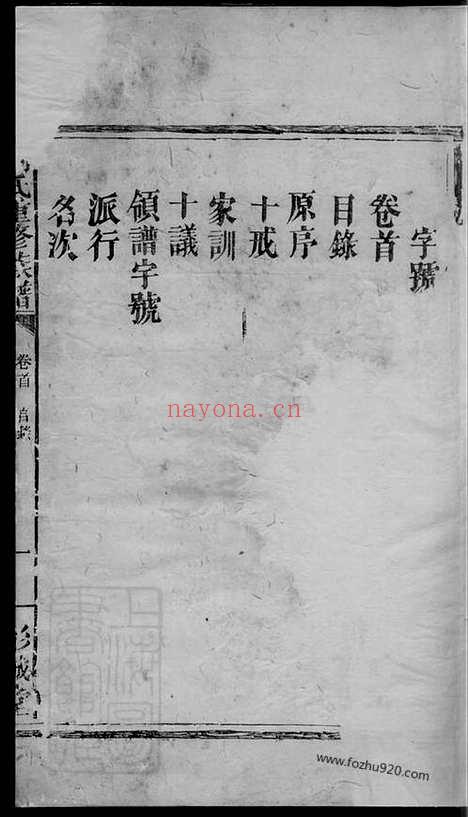 字號
卷首
目錄
原序
十戒
家訓
十議
領譜字號
派行
名次
氏重修族譜
卷首
目錄
一
彭城堂
上海圖書館藏
nayona.cn
www.fozhu920.com